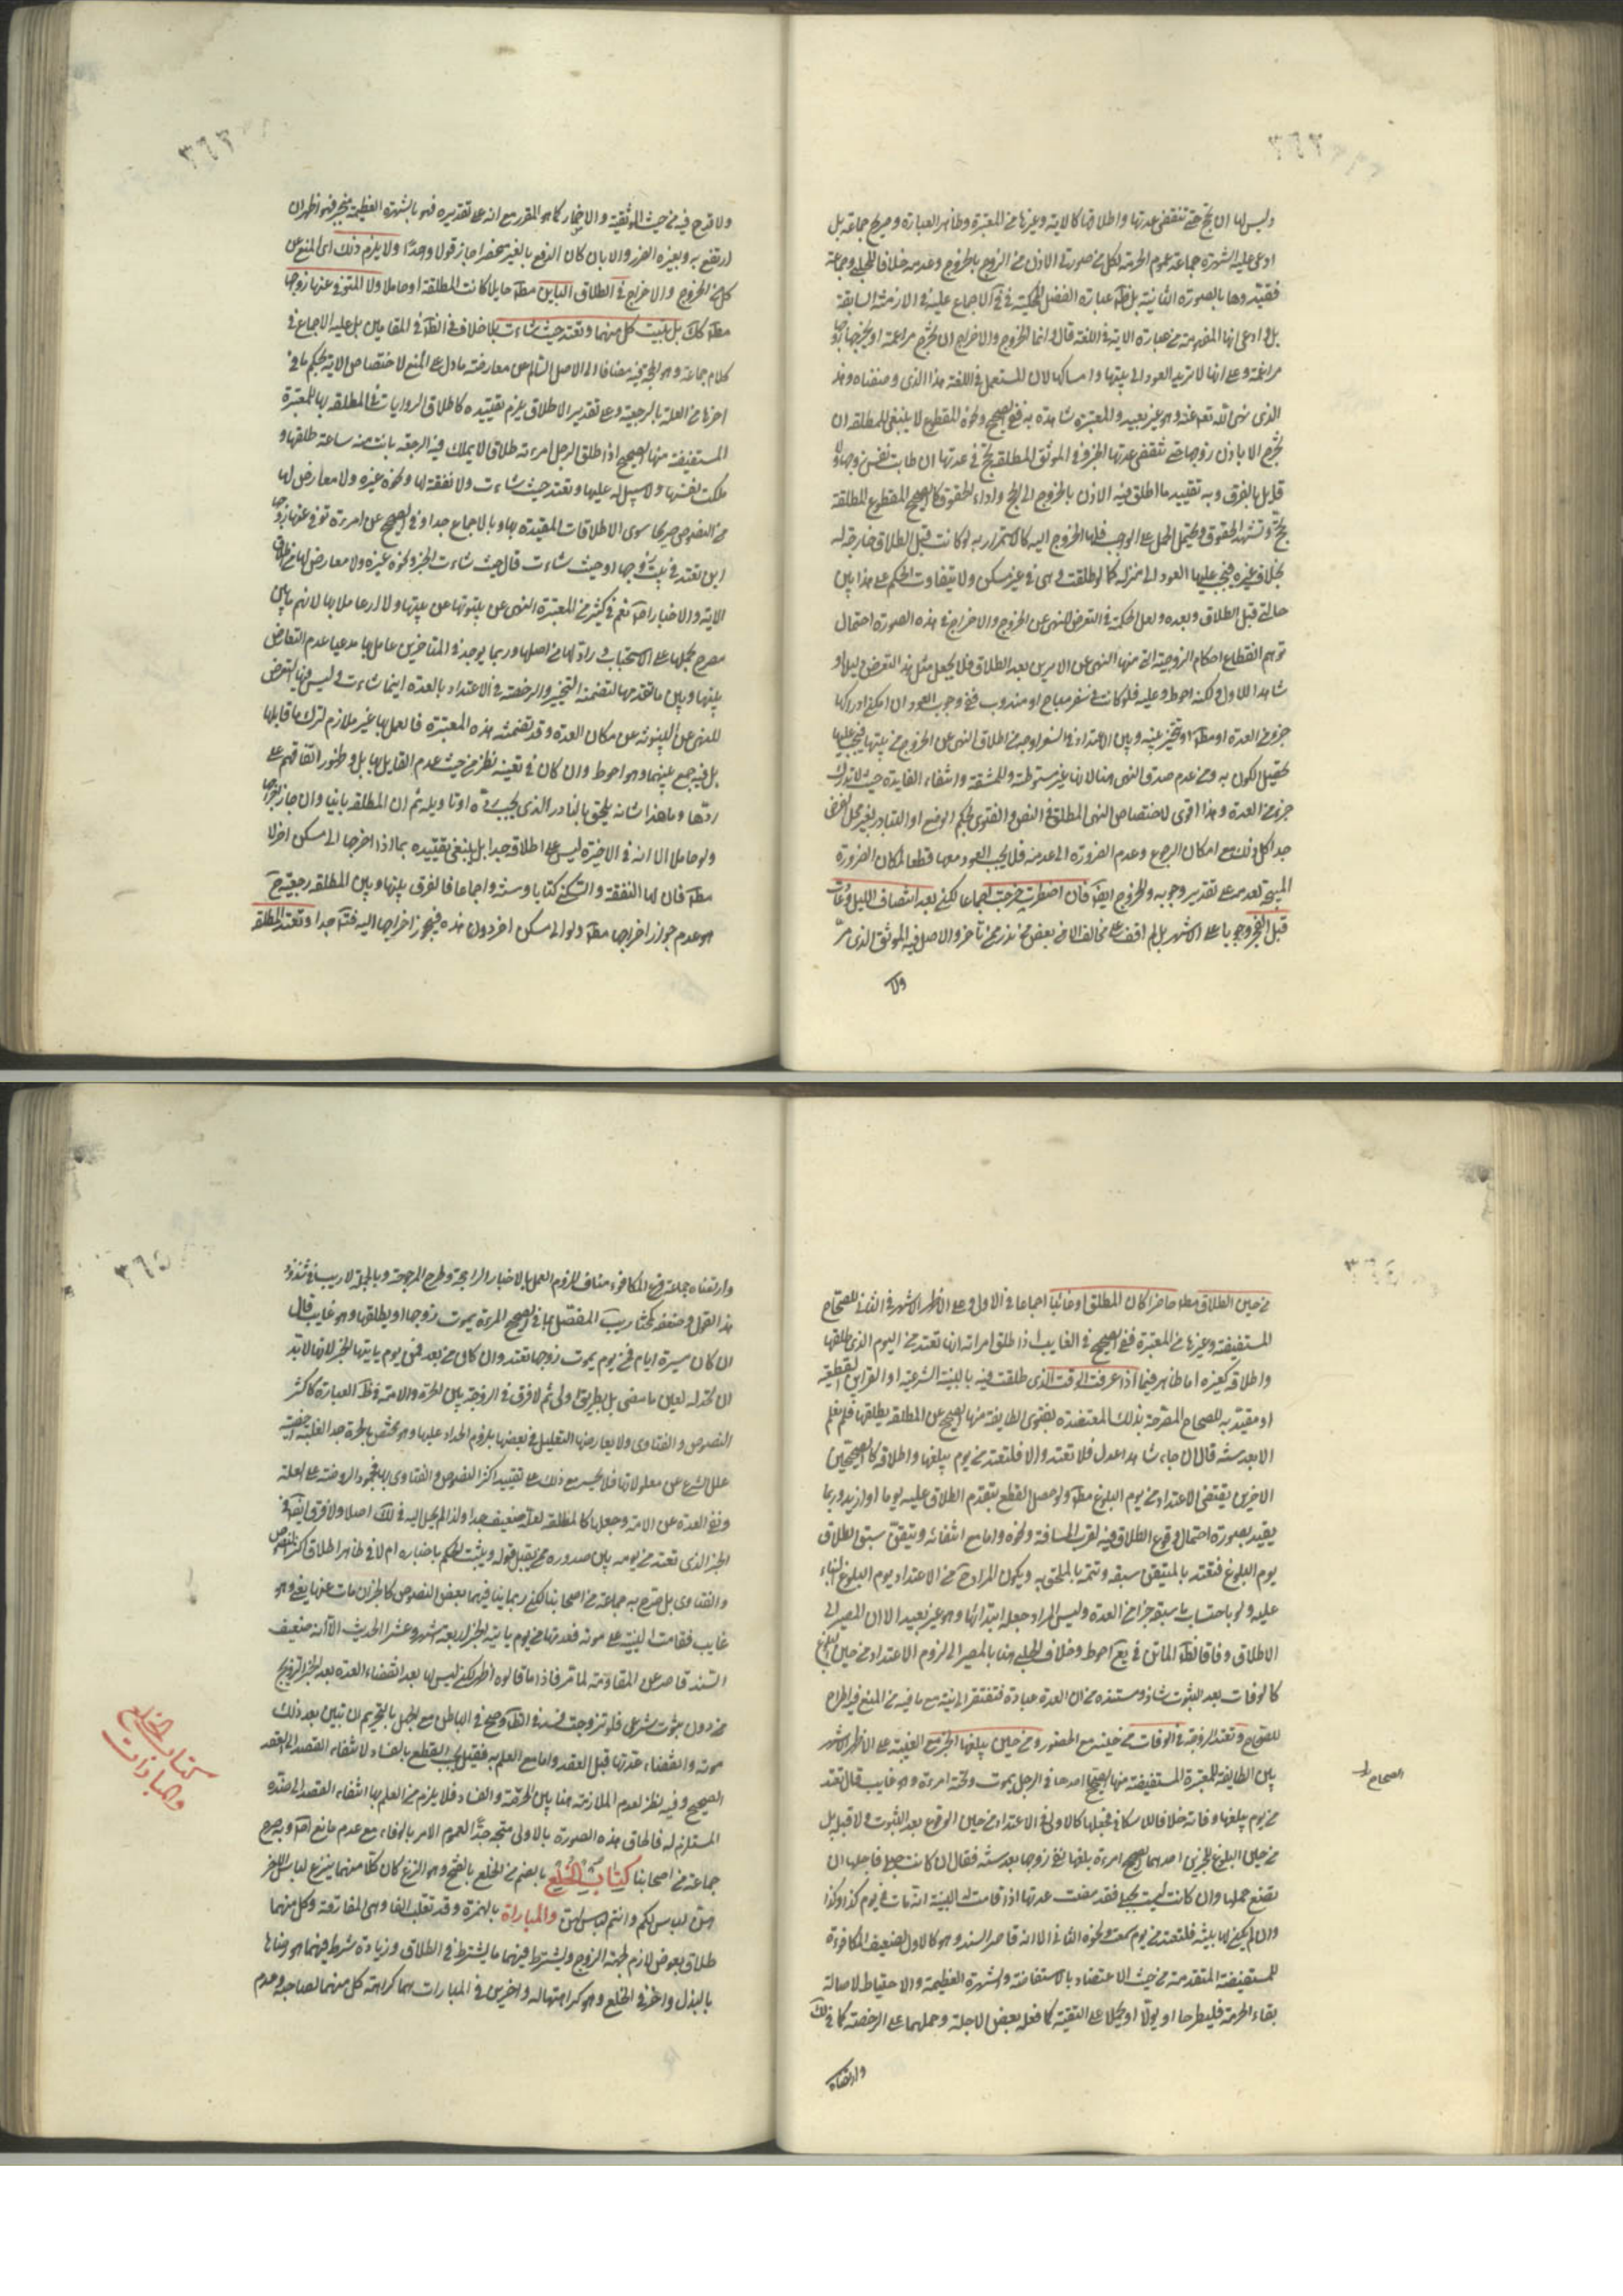 ٣٦٢
وليس لها ان تخرج حتى تنقضي عدتها واطلاقها كالاية وغيرها من المعتبرة وظاهر العبارة وصريح جماعة بل
ادعى عليه الشهرة جماعة عموم الحرمة لكل من صورتي الاذن من الزوج بالخروج وعدمه خلافا للحلبي وجماعة
فقيدوها بالصورة الثانية
مراغمة وعلى انها لا تريد العود الى بيتها وامساكها لان المستعمل في اللغة هذا الذي وصفناه وهذا
الذي نهى الله تعالى عنه وهو غير بعيد والمعتبرة شاهدة به ففي الصحيح ونحوه المقطوع لا ينبغي للمطلقة ان
تخرج الا باذن زوجها حتى تنقضي عدتها الخبر وفي الموثق المطلقة تحج في عدتها ان طابت نفس زوجها
بخلاف غيره فيجب عليها العود الى منزله كما لو طلقت وهي في غير مسكن ولا يتفاوت الحكم على هذا بين
حالتي قبل الطلاق وبعده ولعل الحكمة في التعرض للنهي عن الخروج والاخراج في هذه الصورة احتمال
توهم انقطاع احكام الزوجية التي منها النهي عن الامرين بعد الطلاق فلا يجعل مثل هذا التعرض دليلا و
شاهدا للاول ولكنه احوط وعليه فلو كانت في سفر مباح او مندوب ففي وجوب العود ان امكن ادراكها
جزء من العدة وهذا اقوى لاختصاص النهي المطلق في النص والفتوى بحكم الوضع او التبادر بغير محل الفرض
جدا كل ذلك مع امكان الرجوع وعدم الضرورة الى عدمه فلا يجب العود معها قطعا لمكان الضرورة
المبيحة لعدمه على تقدير وجوبه والخروج ايضا فان اضطرت خرجت اجماعا لكن بعد انتصاف الليل وعادت
قبل الفجر وجوبا على الاشهر بل لم اقف على مخالف الا من بعض من ندر ممن تأخر والاصل فيه الموثق الذي مر
ولا
٣٦٣
ولا قدح فيه من حيث الموثقية والاضمار كما هو المقرر مع انه على تقديره فهو بالشهرة العظيمة منجبر فهو اظهر ان
لم ترتفع به وبغيره الضرر والا بان كان الدفع بالغير منحصرا جاز قولا واحدا ولا يلزم ذلك اي المنع عن
كل من الخروج والاخراج في الطلاق الباين مطلقا حايلا كانت المطلقة او حاملا ولا المتوفى عنها زوجها
مطلقا كذلك بل تبيت كل منهما وتعتد حيث شاءت بلا خلاف في الظاهر في المقامين بل عليه الاجماع في
كلام جماعة وهو الحجة فيه مضافا الى الاصل السالم عن معارضة ما دل على المنع لاختصاص الاية بحكم ما في
اخرها من العلة بالرجعية وعلى تقدير الاطلاق يلزم تقييده كاطلاق الروايات في المطلقة بها للمعتبرة
المستفيضة منها الصحيح اذا طلق الرجل امرءته طلاقا لا يملك فيه الرجعة بانت منه ساعة طلقها و
ملكت نفسها ولا سبيل له عليها وتعتد حيث شاءت ولا نفقة لها ونحوه غيره ولا معارض لها
من النصوص صريحا سوى الاطلاقات المقيدة بها وبالاجماع جدا وفي الصحيح عن امرءة توفي عنها زوجها
اين تعتد في بيت زوجها او حيث شاءت قال حيث شاءت الخبر ونحوه غيره ولا معارض لها من
مصرح بحملها على الاستحباب
بينها وبين ما تقدمها لتضمنه التخيير والرخصة في الاعتداد بالعدة اينما شاءت وليس فيها التعرض
للنهي عن البينونة عن مكان العدة وقد تضمنته هذه المعتبرة فالعمل بها غير ملازم لترك ما قابلها
بل فيه جمع بينهما وهو احوط وان كان في تعينه نظر من حيث عدم القايل بها بل وظهور اتفاقهم على
ردها وما هذا شانه يلحق بالنادر الذي يجب رده او تاويله ثم ان المطلقة باينا وان جاز اخراجها
ولو حاملا الا انه في الاخيرة ليس على اطلاقه جدا بل ينبغي تقييده بما اذا اخرجها الى مسكن اخر لا
مطلقا فان لها النفقة والسكنى كتابا وسنة واجماعا فالفرق بينها وبين المطلقة رجعية ح
هو عدم جواز اخراجها مطلقا ولو الى مسكن اخر دون هذه فيجوز اخراجها اليه فتأمل جدا وتعتد المطلقة
٣٦٤
من حين الطلاق مطلقا حاضرا كان المطلق او غائبا اجماعا في الاول وعلى الاظهر الاشهر في الثاني للصحاح
المستفيضة وغيرها من المعتبرة ففي الصحيح في الغايب اذا طلق امراته انها تعتد من اليوم الذي طلقها
واطلاقه كغيره اما ظاهر فيما اذا عرفت الوقت الذي طلقت فيه بالبينة الشرعية او القراين القطعية
او مقيد به للصحاح المصرحة بذلك المعتضدة بفتوى الطايفة منها الصحيح عن المطلقة يطلقها فلم تعلم
الا بعد سنة قال ان جاء شاهدا عدل فلا تعتد والا فلتعتد من يوم يبلغها واطلاقه كالصحيحين
الاخرين يقتضي الاعتداد من يوم البلوغ مطلقا ولو حصل القطع بتقدم الطلاق عليه يوما او ازيد وربما
يقيد بصورة احتمال وقوع الطلاق فيه لقرب المسافة ونحوه واما مع انتفائه وتيقن سبق الطلاق
يوم البلوغ فتعتد بالمتيقن سبقه وتتمه بالملحق به ويكون المراد ح من الاعتداد يوم البلوغ البناء
عليه ولو باحتساب ما سبقه جزء من العدة وليس المراد جعله ابتدائها وهو غير بعيد الا ان المصير الى
الاطلاق وفاقا لظاهر الماتن في يع احوط وخلاف الحلبي هنا بالمصير الى لزوم الاعتداد من حين البلوغ
كالوفات بعد الثبوت شاذ ومستنده من ان العدة عبادة فتفتقر الى نية مع ما فيه من المنع فيه اطراح
للصحاح وتعتد الزوجة في الوفات من حينه مع الحضور ومن حين يبلغها الخبر مع الغيبة على الاظهر الاشهر
بين الطايفة للمعتبرة المستفيضة منها الصحاح احدها في الرجل يموت وتحته امرءة وهو غايب قال تعتد
من يوم يبلغها وفاته خلافا للاسكافي فجعلها كالاولى في الاعتداد من حين الوقوع بعد الثبوت والا قبله بل
من حين البلوغ للخبرين احدهما الصحيح امرءة بلغها نعي زوجها بعد سنة فقال ان كانت حبلى فاجلها ان
تضع حملها وان كانت ليست بحبلى فقد مضت عدتها اذا قامت لها البينة انه مات في يوم كذا وكذا
وان لم يكن لها بينة فلتعتد من يوم سمعت ونحوه الثاني الا انه قاصر السند وهو كالاول ضعيف المكافوءة
للمستفيضة المتقدمة من حيث الاعتضاد بالاستفاضة والشهرة العظيمة والاحتياط لاصالة
بقاء الحرمة فليطرحا او يؤلا او يحملا على التقية كما فعله بعض الاجلة وحملهما على الرخصة كما في لك
الصحاح
وارتضاه
٣٦٥
وارتضاه جماعة فرع المكافوءة مناف للزوم العمل بالاخبار الراجحة وطرح المرجوحة وبالجملة لا ريب في شذوذ
هذا القول وضعفه
ان كان مسيرة ايام فمن يوم يموت زوجها تعتد وان كان من بعد فمن يوم ياتيها الخبر لانها لا بد
ان تحد له
النصوص والفتاوى ولا يعارضها التعليل في بعضها بلزوم الحداد عليها وهو مختص بالحرة
الخبر الذي تعتد من يومه بين صدوره ممن يقبل قوله ويثبت الحكم باخباره ام لا في ظاهر اطلاق اكثر النصوص
والفتاوى بل صرح به جماعة من اصحابنا لكن ربما ينافيهما بعض النصوص كالخبر ان مات عنها يعني وهو
غايب فقامت البينة على موته فعدتها من يوم ياتيه الخبر اربعة اشهر وعشرا الحديث الا انه ضعيف
السند قاصر عن المقاومة لما مر فاذا ما قالوه اظهر لكن ليس لها بعد انقضاء العدة بعد الخبر التزويج
من دون ثبوت شرعي فلو تزوجت فسد في الظاهر وصح في الباطن مع الجهل بالتحريم ان تبين بعد ذلك
موته وانقضاء عدتها قبل العقد واما مع العلم به فقيل يجب القطع بالفساد لانتفاء القصد الى العقد
الصحيح وفيه نظر لعدم الملازمة هنا بين الحرمة والفساد فلا يلزم من العلم بها انتفاء القصد الى ضده
المستلزم له فالحاق هذه الصورة بالاولى متجه جدا لعموم الامر بالوفاء مع عدم مانع اخر وبه صرح
جماعة من اصحابنا كتاب الخلع بالضم من الخلع بالفتح وهو النزع كان كلا منهما ينزع لباس الاخر
هن لباس لكم وانتم لباس لهن والمباراة بالهمزة وقد تقلب الفا وهي المفارقة وكل منهما
طلاق بعوض لازم لجهة الزوج ويشترط فيهما ما يشترط في الطلاق وزيادة شرط فيهما هو رضاها
بالبذل واخر في الخلع وهو كراهتها له واخرين في المبارات هما كراهة كل منهما لصاحبه وعدم
كتاب الخلع
والمبارات